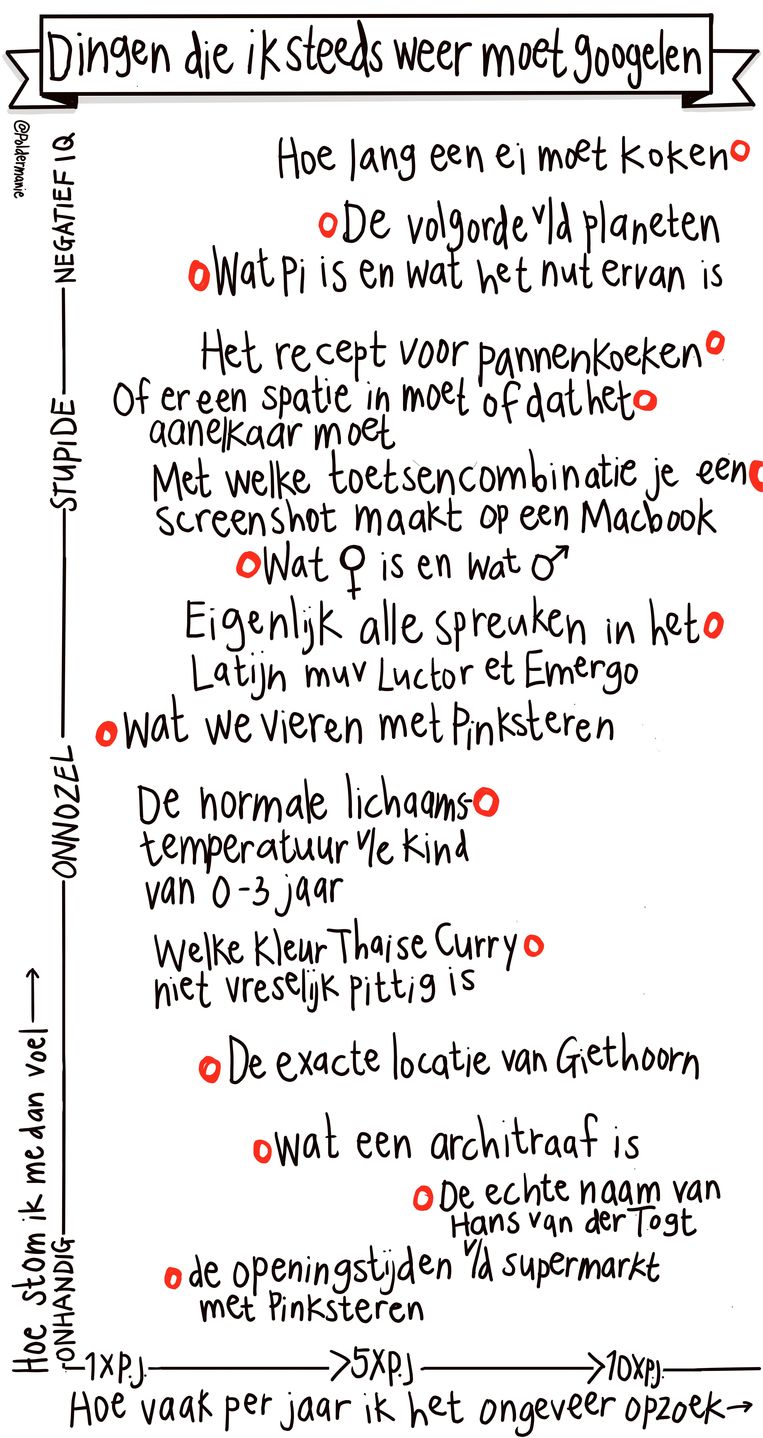 Dingen die ik steeds weer moet googelen
@Poldermanie
NEGATIEF IQ
Hoe lang een ei moet koken
De volgorde v/d planeten
Wat pi is en wat het nut ervan is
Het recept voor pannenkoeken
STUPIDE
Of er een spatie in moet of dat het
aanelkaar moet
Met welke toetsencombinatie je een
screenshot maakt op een Macbook
Wat ♀ is en wat ♂
Eigenlijk alle spreuken in het
Latijn muv Luctor et Emergo
Wat we vieren met Pinksteren
ONNOZEL
De normale lichaams-
temperatuur v/e kind
van 0-3 jaar
Welke kleur Thaise Curry
niet vreselijk pittig is
De exacte locatie van Giethoorn
Wat een architraaf is
De echte naam van
Hans van der Togt
de openingstijden v/d supermarkt
met Pinksteren
ONHANDIG
Hoe stom ik me dan voel →
1XP.J. >5XP.J >10XPJ.
Hoe vaak per jaar ik het ongeveer opzoek→